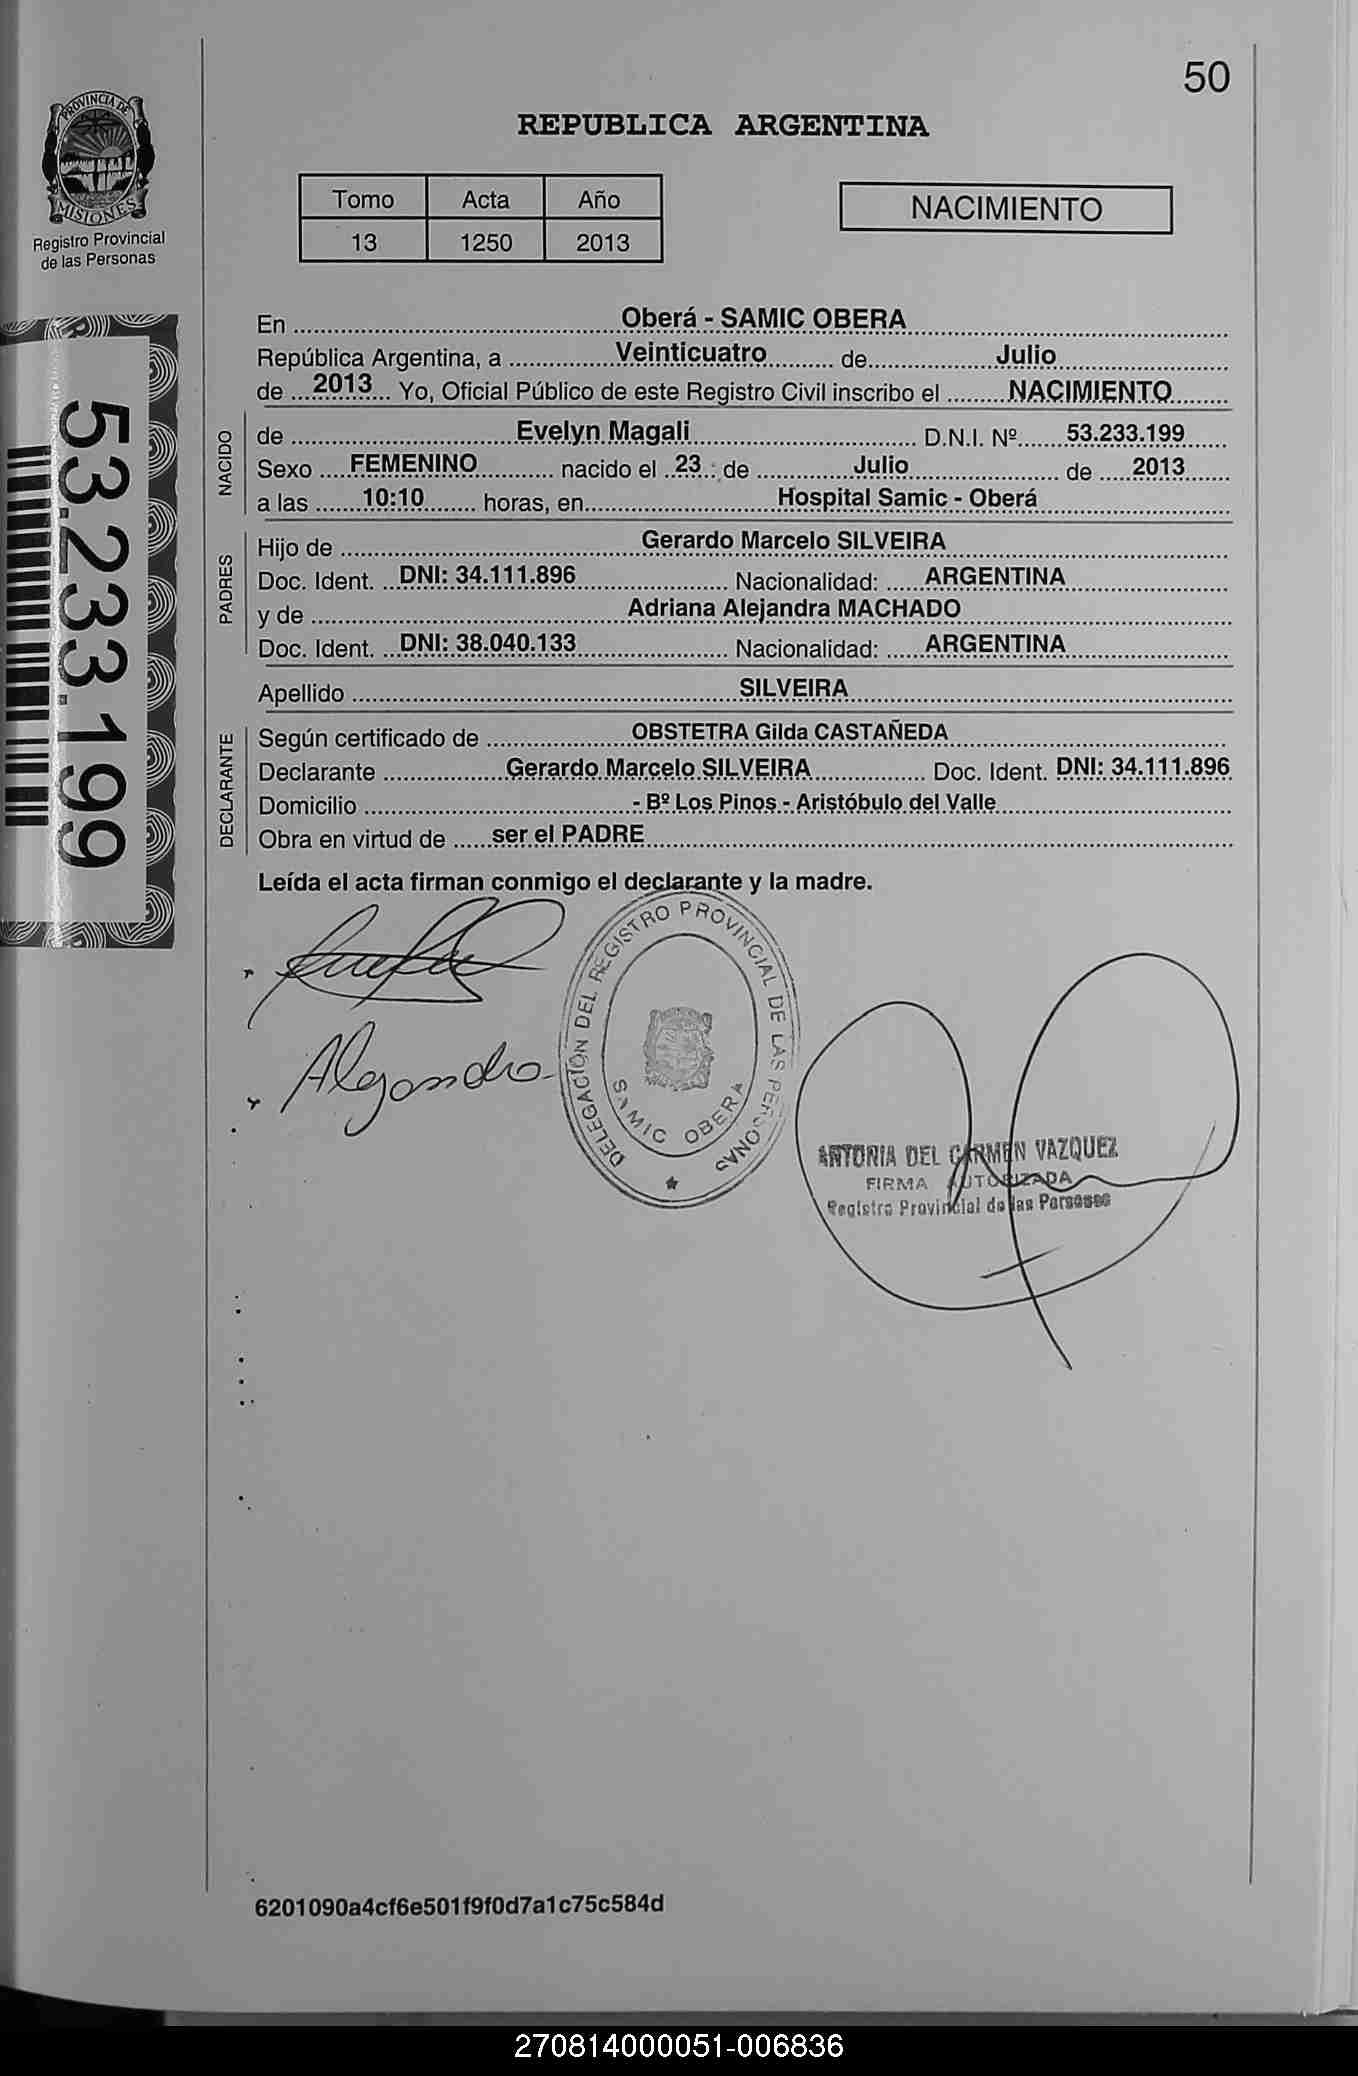 50
PROVINCIA DE
MISIONES
Registro Provincial
de las Personas
REPUBLICA ARGENTINA
Tomo Acta Año
13 1250 2013
NACIMIENTO
53.233.199
En Oberá - SAMIC OBERA
República Argentina, a Veinticuatro de Julio
de 2013 Yo, Oficial Público de este Registro Civil inscribo el NACIMIENTO
NACIDO
de Evelyn Magali D.N.I. Nº 53.233.199
Sexo FEMENINO nacido el 23 de Julio de 2013
a las 10:10 horas, en Hospital Samic - Oberá
PADRES
Hijo de Gerardo Marcelo SILVEIRA
Doc. Ident. DNI: 34.111.896 Nacionalidad: ARGENTINA
y de Adriana Alejandra MACHADO
Doc. Ident. DNI: 38.040.133 Nacionalidad: ARGENTINA
Apellido SILVEIRA
DECLARANTE
Según certificado de OBSTETRA Gilda CASTAÑEDA
Declarante Gerardo Marcelo SILVEIRA Doc. Ident. DNI: 34.111.896
Domicilio - Bº Los Pinos - Aristóbulo del Valle
Obra en virtud de ser el PADRE
Leída el acta firman conmigo el declarante y la madre.
Alejandra
DELEGACIÓN DEL REGISTRO PROVINCIAL DE LAS PERSONAS
SAMIC OBERA
ANTONIA DEL CARMEN VAZQUEZ
FIRMA AUTORIZADA
Registro Provincial de las Personas
6201090a4cf6e501f9f0d7a1c75c584d
270814000051-006836